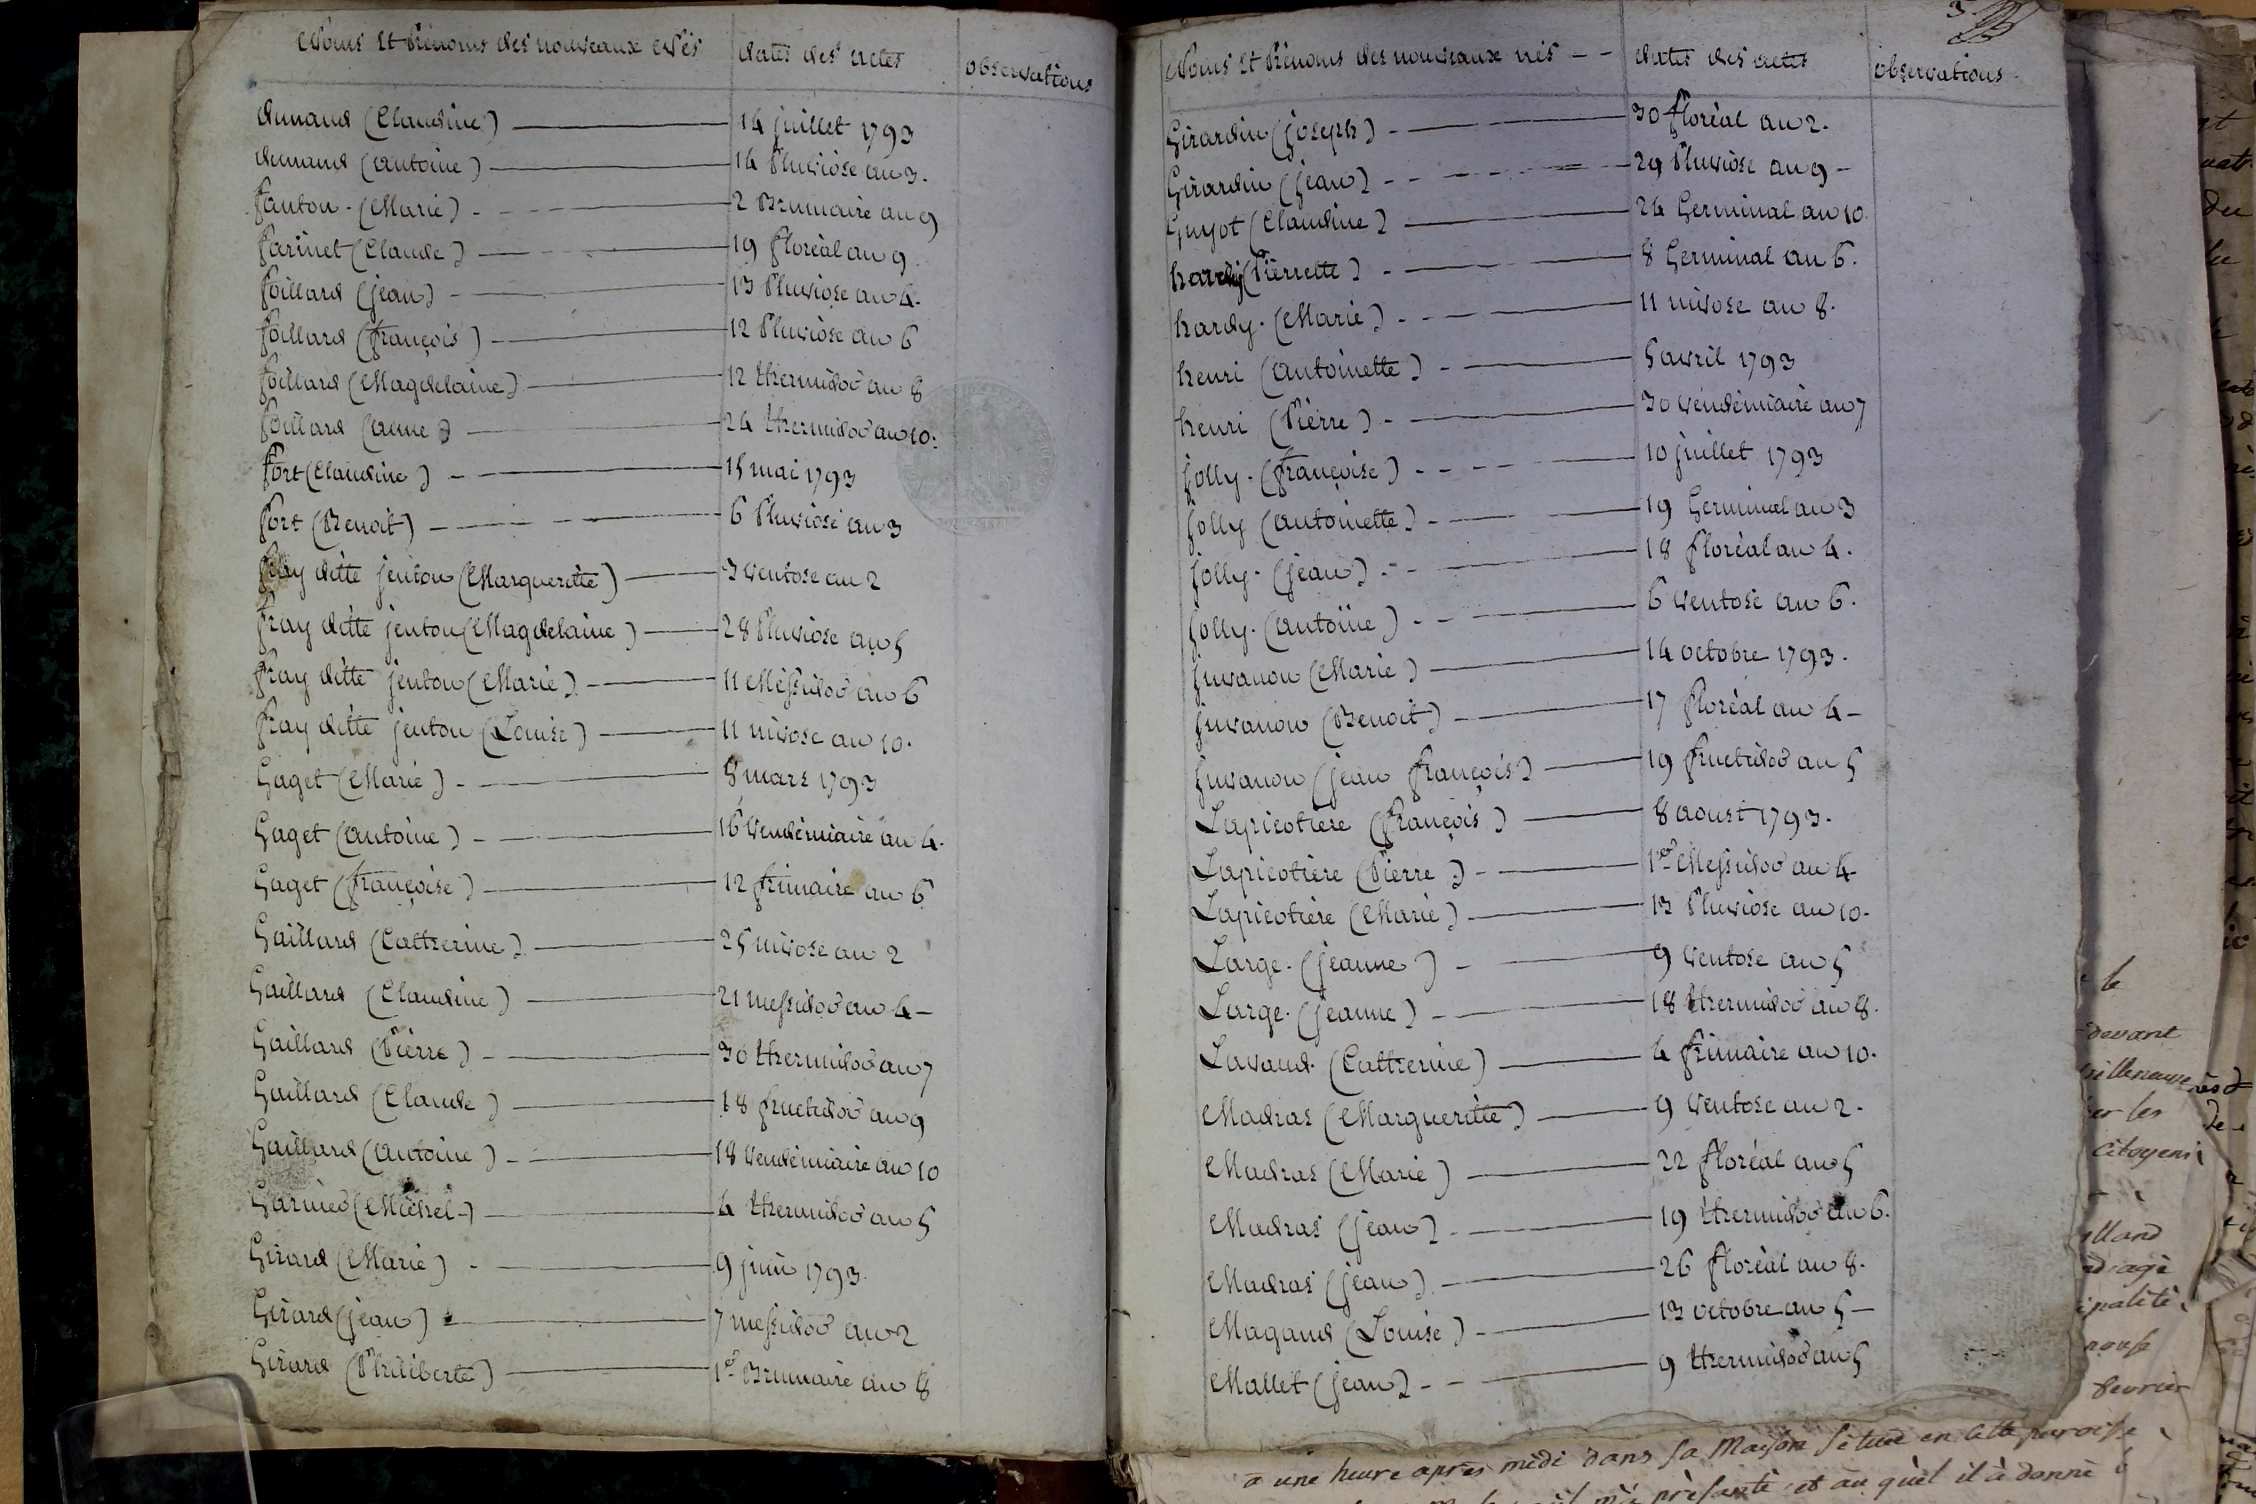 Noms et Prénoms des nouveaux Nés dates des actes observations
dumand (Claudine) 14 juillet 1793
dumand (antoine) 14 Pluviose an 3.
fanton. (Marie) 2 Brumaire an 9
farinet (Claude) 19 floréal an 9
foillard (jean) 13 Pluviose an 4.
foillard (françois) 12 Pluviose an 6
foillard (Magdelaine) 12 thermidor an 8
foillard (anne) 24 thermidor an 10.
fort (Claudine) 15 mai 1793
fort (Benoit) 6 Pluviose an 3
fray ditte jenton (Margueritte) 3 ventose an 2
fray ditte jenton (Magdelaine) 28 Pluviose an 5
fray ditte jenton (Marie) 11 Messidor an 6
fray ditte jenton (Louise) 11 nivose an 10.
Gaget (Marie) 8 mars 1793
Gaget (antoine) 16 vendémiaire an 4.
Gaget (françoise) 12 frimaire an 6
Gaillard (Catherine) 25 nivose an 2
Gaillard (Claudine) 21 messidor an 4
Gaillard (Pierre) 30 thermidor an 7
Gaillard (Claude) 18 fructidor an 9
Gaillard (antoine) 18 vendémiaire an 10
Garnier (Michel) 4 thermidor an 5
Girard (Marie) 9 juin 1793.
Girard (jean) 7 messidor an 2
Girard (Philiberte) 1er Brumaire an 8
3
Noms et Prénoms des nouveaux nés dates des actes observations.
Girardin (joseph) 30 floréal an 2.
Girardin (jean) 29 Pluviose an 9
Guyot (Claudine) 24 Germinal an 10.
hardy (Pierrette) 8 Germinal an 6.
hardy. (Marie) 11 nivose an 8.
henri (antoinette) 5 avril 1793
henri (Pierre) 30 vendémiaire an 7
jolly. (françoise) 10 juillet 1793
jolly (antoinette) 19 Germinal an 3
jolly. (jean) 18 floréal an 4.
jolly. (antoine) 6 ventose an 6.
juvanon (Marie) 14 octobre 1793.
juvanon (Benoit) 17 floréal an 4
juvanon (jean françois) 19 fructidor an 5
Lapicotiere (françois) 8 aoust 1793.
Lapicotière (Pierre) 1er Messidor an 4
Lapicotière (Marie) 13 Pluviose an 10.
Large. (jeanne) 9 ventose an 5
Large. (jeanne) 18 thermidor an 8.
Lavaud. (Catherine) 4 frimaire an 10.
Madras (Margueritte) 9 ventose an 2.
Madras (Marie) 22 floréal an 5
Madras (jean) 19 thermidor an 6.
Madras (jean) 26 floréal an 8.
Magaud (Louise) 13 octobre an 5
Mallet (jean) 9 thermidor an 5
le
devant
villeneuve
er les
Citoyens
fevrier
a une heure après midi dans sa Maison située en cette paroisse
présenté et au quel il à donné